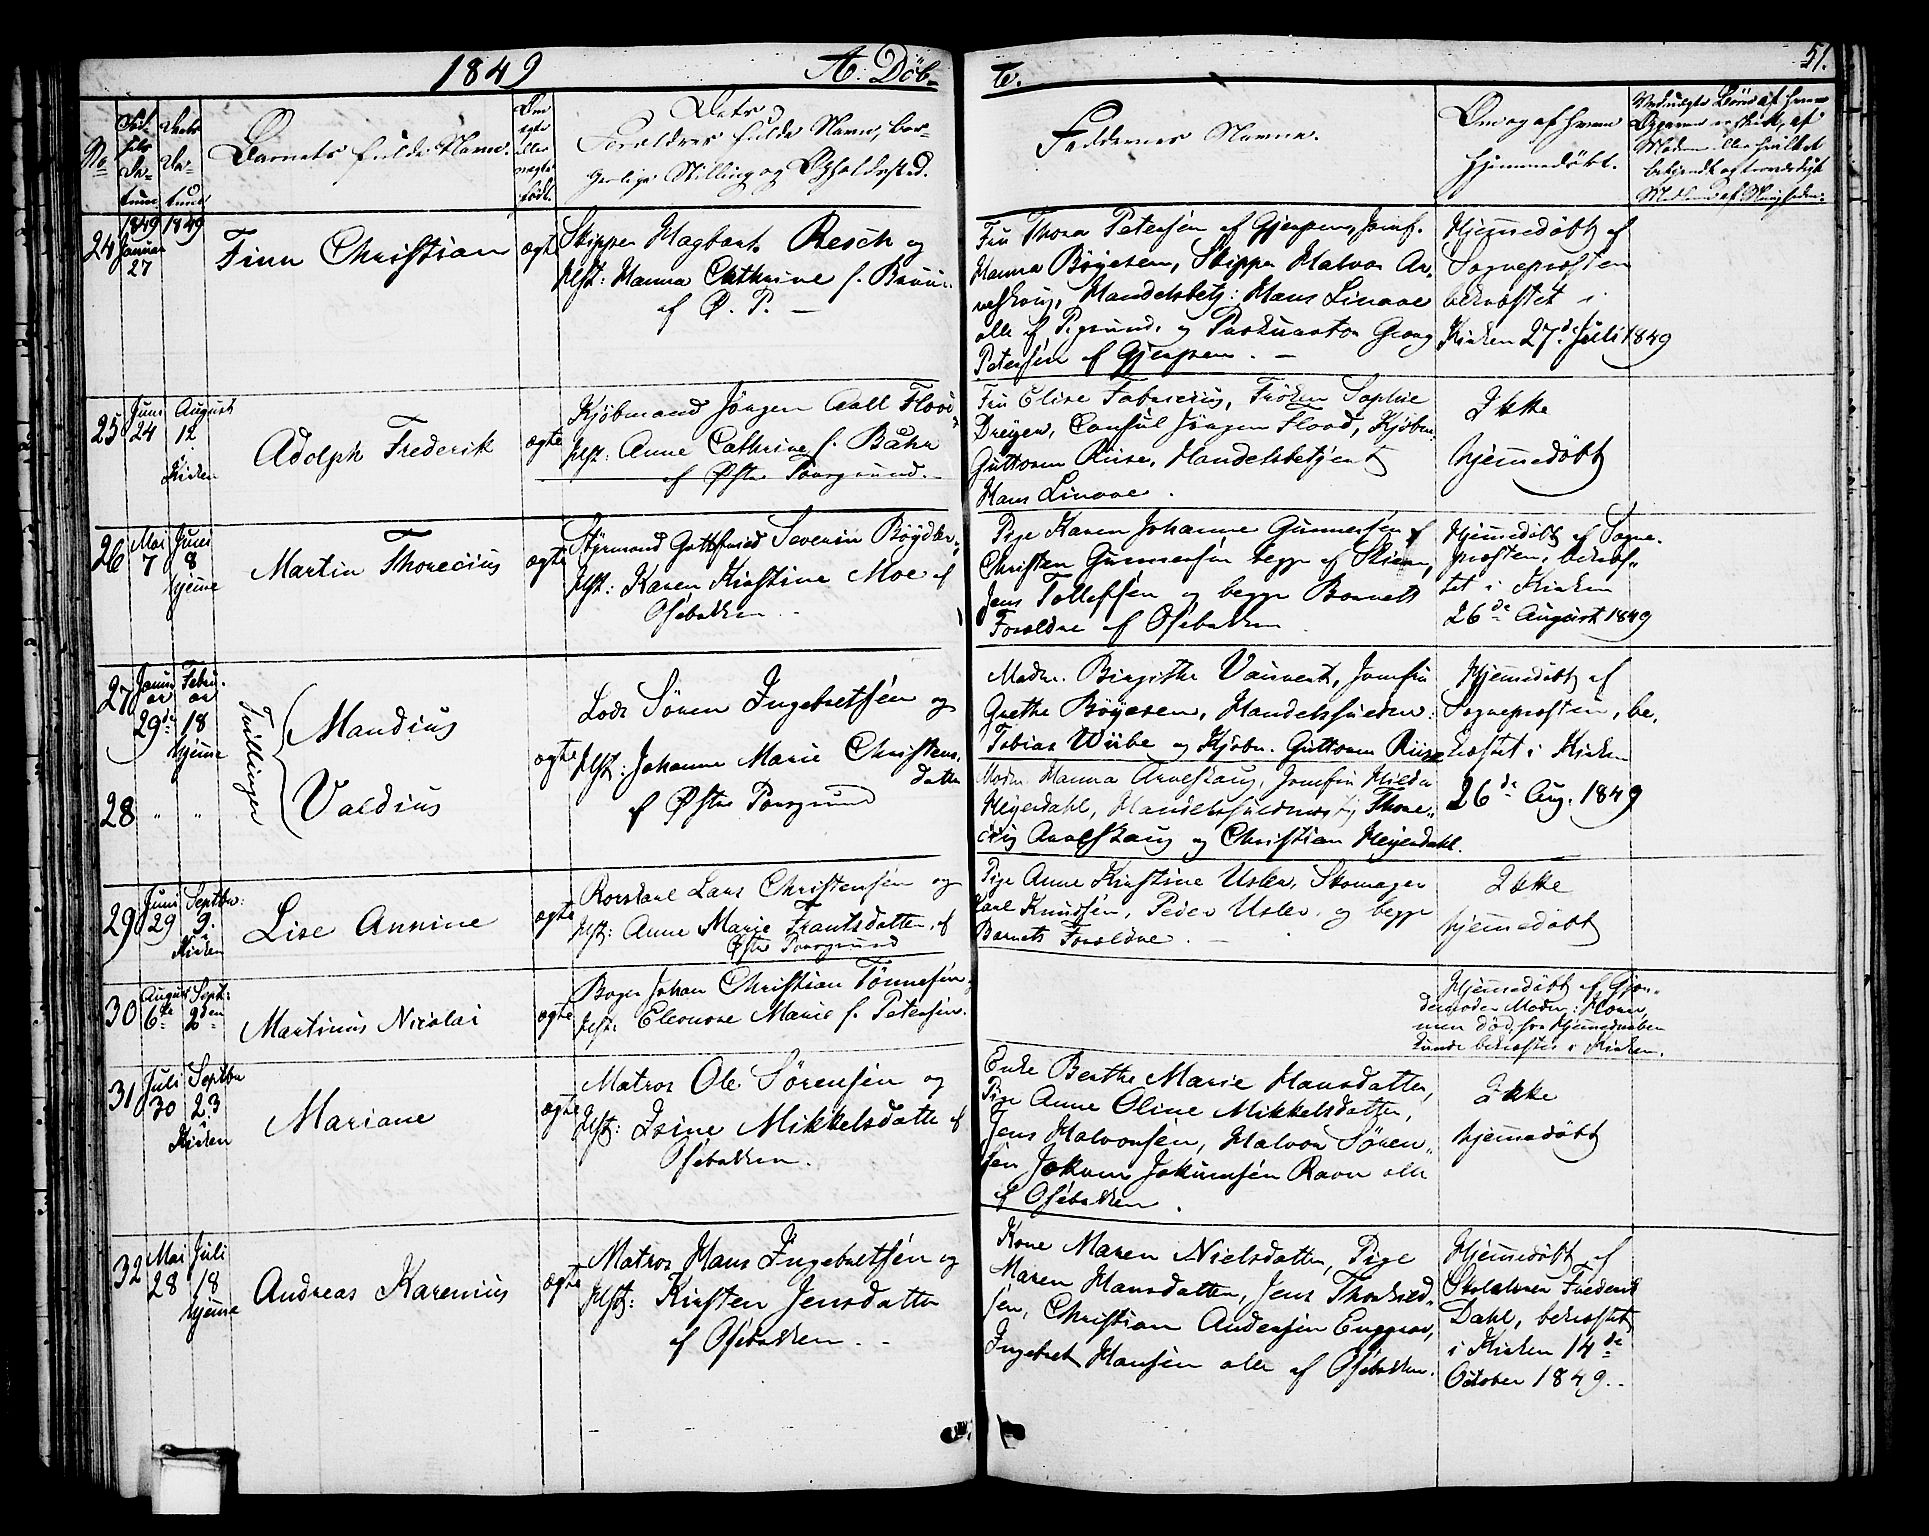 1849 A. Döb-
te. 51.
No
Barnets fulde Navn.
Om ægte eller uægte født.
Dets Forældres fulde Navn, bor-
gerlige Stilling og Opholdssted.
Faddernes Navne.
Om og af hvem
hjemmedöbt.
24 1849 Januar 27
1849
Finn Christian
ægte
Skipper Hagbart Resch og
Hst: Hanna Cathrine f. Bruun
af Ø. P. —
Fru Thora Petersen af Gjerpen, Jomf.
Hanna Böyesen, Skipper Halvor Ar-
veskoug, Handelsbetj: Hans Linaae
alle af Pgrund, og Georg
Petersen af Gjerpen. —
Hjemedöbt af
Sogneprosten
bekræftet i
Kirken 27de Juli 1849
25 Juni 24
August 12 i Kirken
Adolph Frederik
ægte
Kjöbmand Jörgen Aall Flood
Hst: Anne Cathrine f. Bahr
af Øster Porsgrund.
Fru Elise Fabricius, Fröken Sophie
Dreyer, Consul Jörgen Flood, Kjöbm.
Guttorm Riise, Handelsbetjent
Hans Linaae.
Ikke
hjemedöbt
26 Mai 7
Juni 8 hjeme
Martin Thorecius
ægte
Styrmand Gottfried Severin
Hst: Karen Kirstine Moe af
Osebakken
Pige Karen Johanne Gunnersen og
Christen Gunnersen begge af Skien,
Jens Tollefsen og begge Barnets
Forældre af Osebakken.
Hjemedöbt af Sogne-
prosten, bekræf-
tet i Kirken
26de August 1849
27 Januar 29de
Februar 18 hjeme
Tvillinger
Mandius
ægte
Lods Sören Ingebretsen og
Hst: Johanne Marie Christens-
datter
af Øster Porsgrund
Madm. Birgithe Vauvert, Jomfru
Grethe Böyesen,
Tobias Wiibe og Kjöbm. Guttorm Riise
Hjemedöbt af
Sogneprosten, be-
kræftet i Kirken
26de Aug. 1849
28 " "
Valdius
Madm Hanna Arveskoug, Jomfru
Heyerdahl,
Arveskoug og Christian Heyerdahl.
29 Juni 29
Septbr: 9. i Kirken
Lise Annine
ægte
Lars Christensen og
Hst: Anne Marie Frantsdatter af
Øster Porsgrund
Pige Anne Kirstine Usler, Skomager
Carl Knudsen, Peder Usler og begge
Barnets Forældre. —
Ikke
hjemedöbt
30 August 6te
Sept: 2den
Martinus Nicolai
ægte
Bager Johan Christian Tönnesen,
Hst: Eleonore Marie f. Petersen.
Hjemedöbt af Gjor-
demoder Madm:
men död, för Hjemedaaben
kunde bekræftes i Kirken.
31 Juli 30
Septbr 23 i Kirken
Mariane
ægte
Matros Ole Sörensen og
Hst: Isine Mikkelsdatter af
Osebakken.
Enke Berthe Marie Hansdatter,
Pige Anne Oline Mikkelsdatter,
Jens Halvorsen, Halvor Sören-
sen, Jokum Jokumsen Ravn alle
af Osebakken.
Ikke
hjemedöbt
32 Mai 28
Juli 18 hjeme
Andreas Karenius
ægte
Matros Hans Ingebretsen og
Hst: Kirsten Jensdatter
af Osebakken. —
Kone Maren Nielsdatter, Pige
Maren Hansdatter, Jens Thorkild-
sen, Christian Andersen Enggrav,
Ingebret Hansen alle af Osebakken.
Hjemedöbt af
Skolelærer Frederik
Dahl, bekræftet
i Kirken 14de
October 1849.